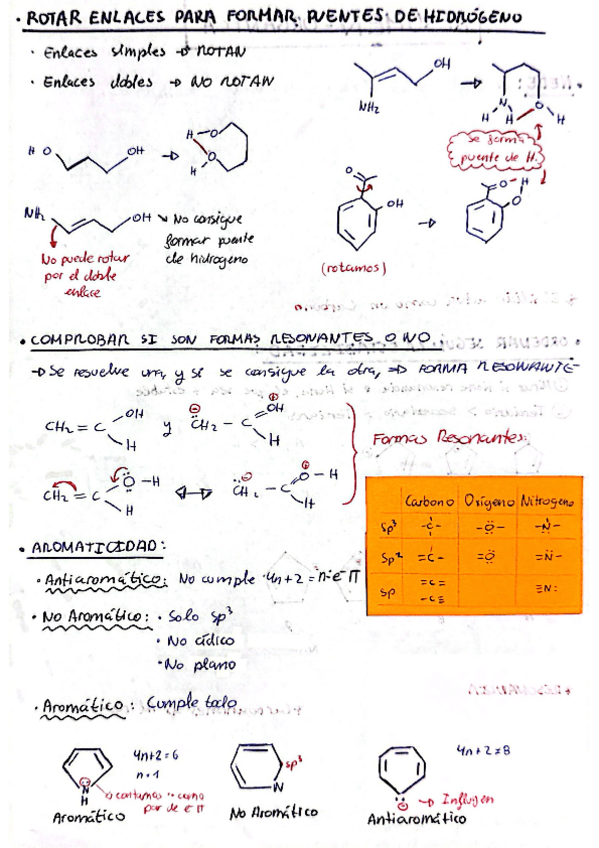 · ROTAR ENLACES PARA FORMAR PUENTES DE HIDRÓGENO
· Enlaces simples → ROTAN
· Enlaces dobles → NO ROTAN
OH
NH₂
N O
H H H
Se forma
puente de H.
HO OH → H-O
O
H
NH₂ OH ↘ No consigue
formar puente
de hidrogeno
No puede rotar
por el doble
enlace
O
OH
(rotamos)
O H
O
· COMPROBAR SI SON FORMAS RESONANTES O NO.
→ Se resuelve una, y si se consigue la otra, ⇒ FORMA RESONANTE
CH₂ = C OH H y ⊖ C̈H₂ - C ⊕ OH H
Formas Resonantes
CH₂ = C Ö - H H ↔ ⊖ C̈H₂ - C ⊕ O - H H
Carbono Oxígeno Nitrogeno
sp³ -C- -Ö- -N̈-
sp² =C- =Ö =N̈-
sp =C= -C≡ ≡N:
· AROMATICIDAD:
· Antiaromático: No cumple 4n+2 = nº e⁻ π
· No Aromático: · Solo sp³
· No cíclico
· No plano
· Aromático: Cumple todo
4n+2=6
n=1
N
H
contamos ·· como
par de e π
Aromático
sp³
N
No Aromático
4n+2=8
→ Influyen
Antiaromático